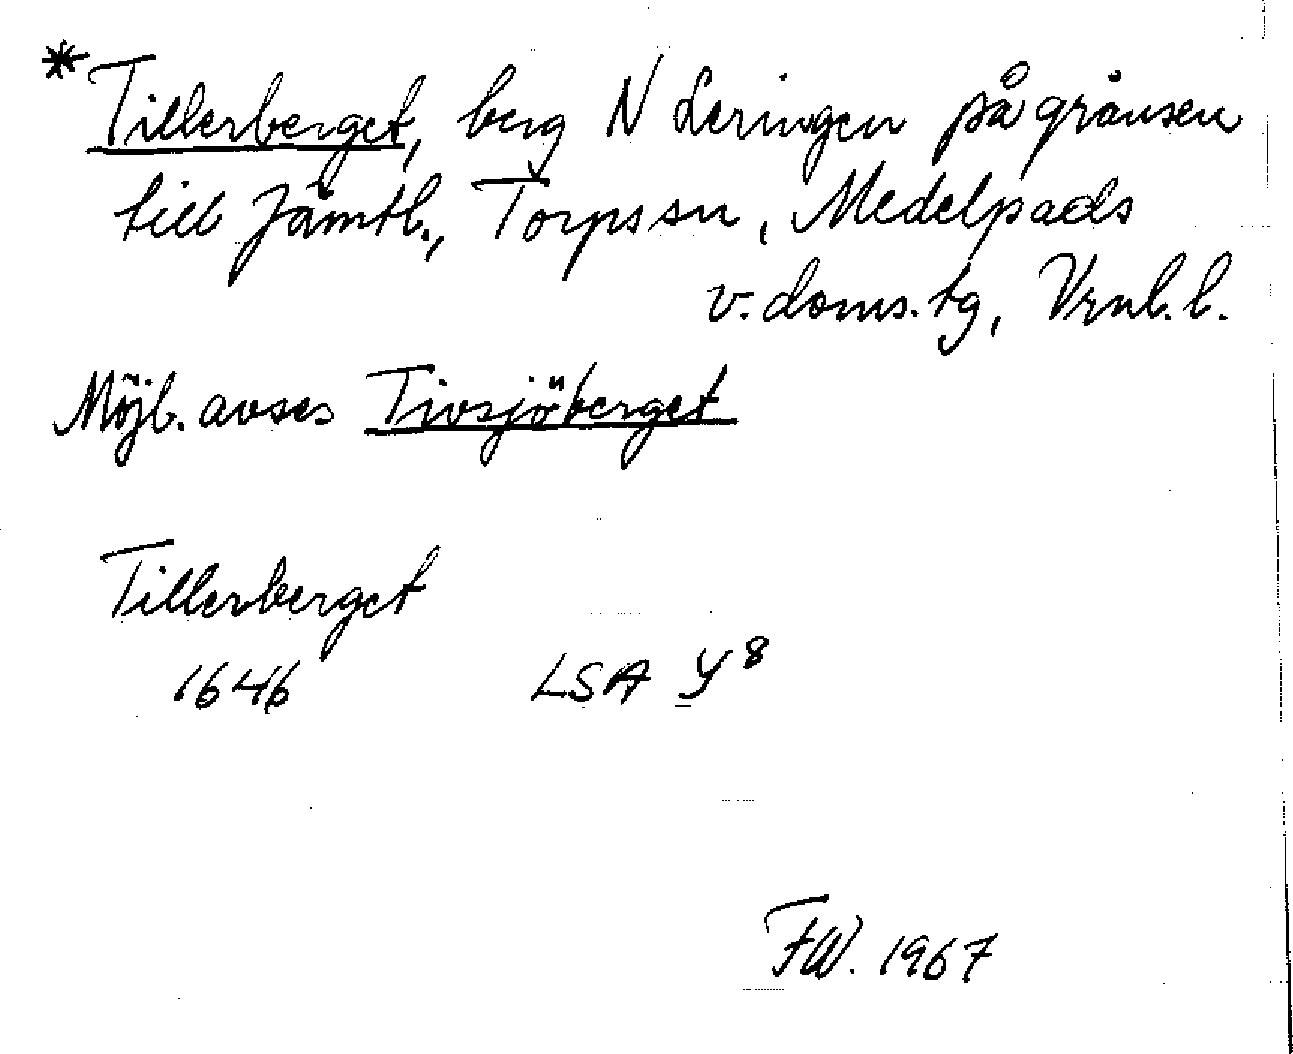 * Tillerberget, berg N Leringen på gränsen
till Jämtl., Torps sn, Medelpads
v. doms. tg, Vrnl. l.
Möjl. avses Tivsjöberget
Tillerberget
1646 LSA Y8
FW. 1967